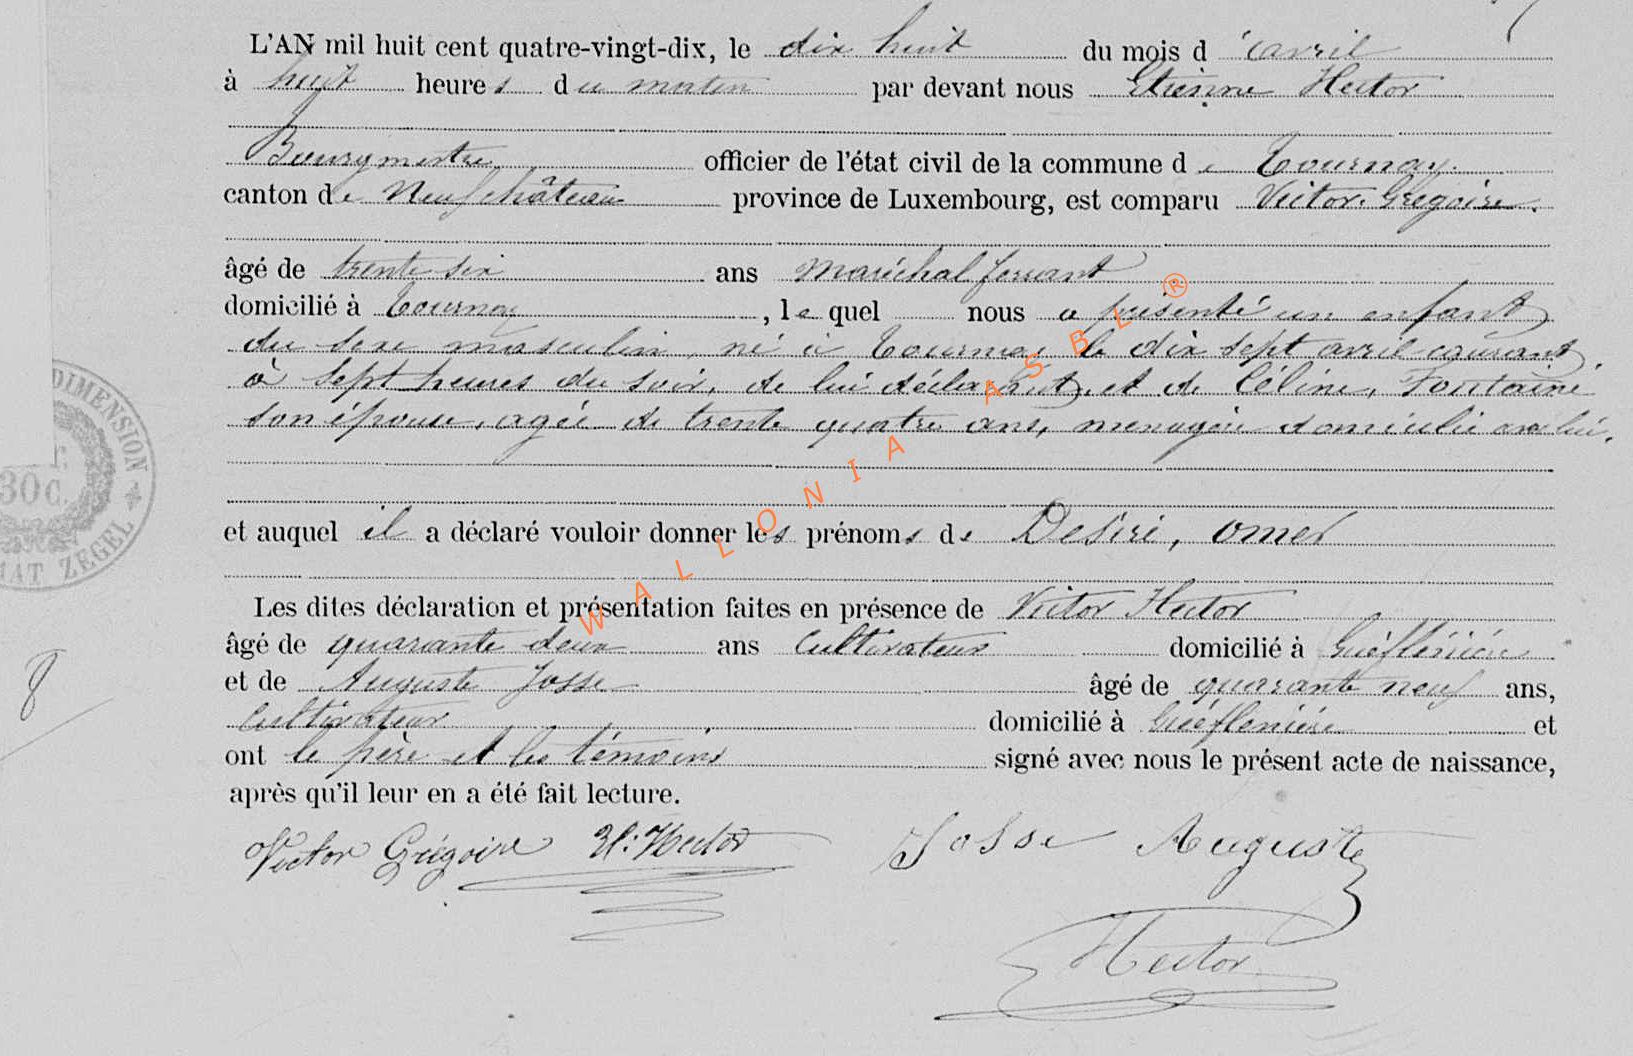 L'AN mil huit cent quatre-vingt-dix, le dix huit du mois d'avril
à huit heures du matin par devant nous Etienne Hector
Bourgmestre officier de l'état civil de la commune de Tournay.
canton de Neufchâteau province de Luxembourg, est comparu Victor Grégoire.
âgé de trente six ans Maréchal ferrant
domicilié à Tournay, lequel nous a présenté un enfant
du sexe masculin, né à Tournay le dix sept avril courant,
à sept heures du soir, de lui déclarant, et de Céline, Fontaine
son épouse, agée de trente quatre ans, ménagère domiciliée avec lui.
et auquel il a déclaré vouloir donner les prénoms de Désiré, omer
Les dites déclaration et présentation faites en présence de Victor Hector
âgé de quarante deux ans Cultivateur domicilié à
et de Auguste Josse âgé de quarante neuf ans,
Cultivateur domicilié à et
ont le père et les témoins signé avec nous le présent acte de naissance,
après qu'il leur en a été fait lecture.
Victor Grégoire V. Hector Josse Auguste
Hector
8
DIMENSION
30 c.
ZEGEL
WALLONIA ASBL ®